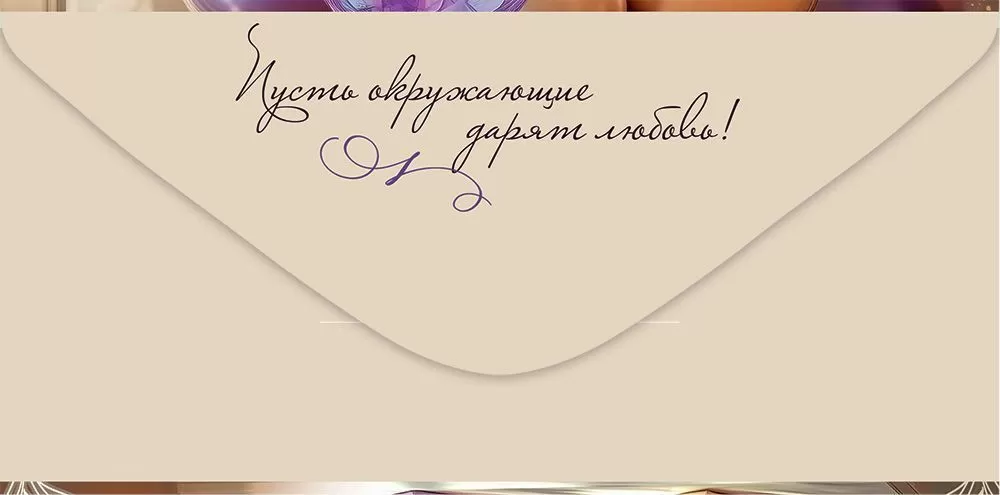 Пусть окружающие
дарят любовь!